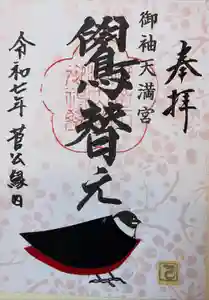 奉拝
御袖天満宮
鷽替え
令和七年 菅公縁日